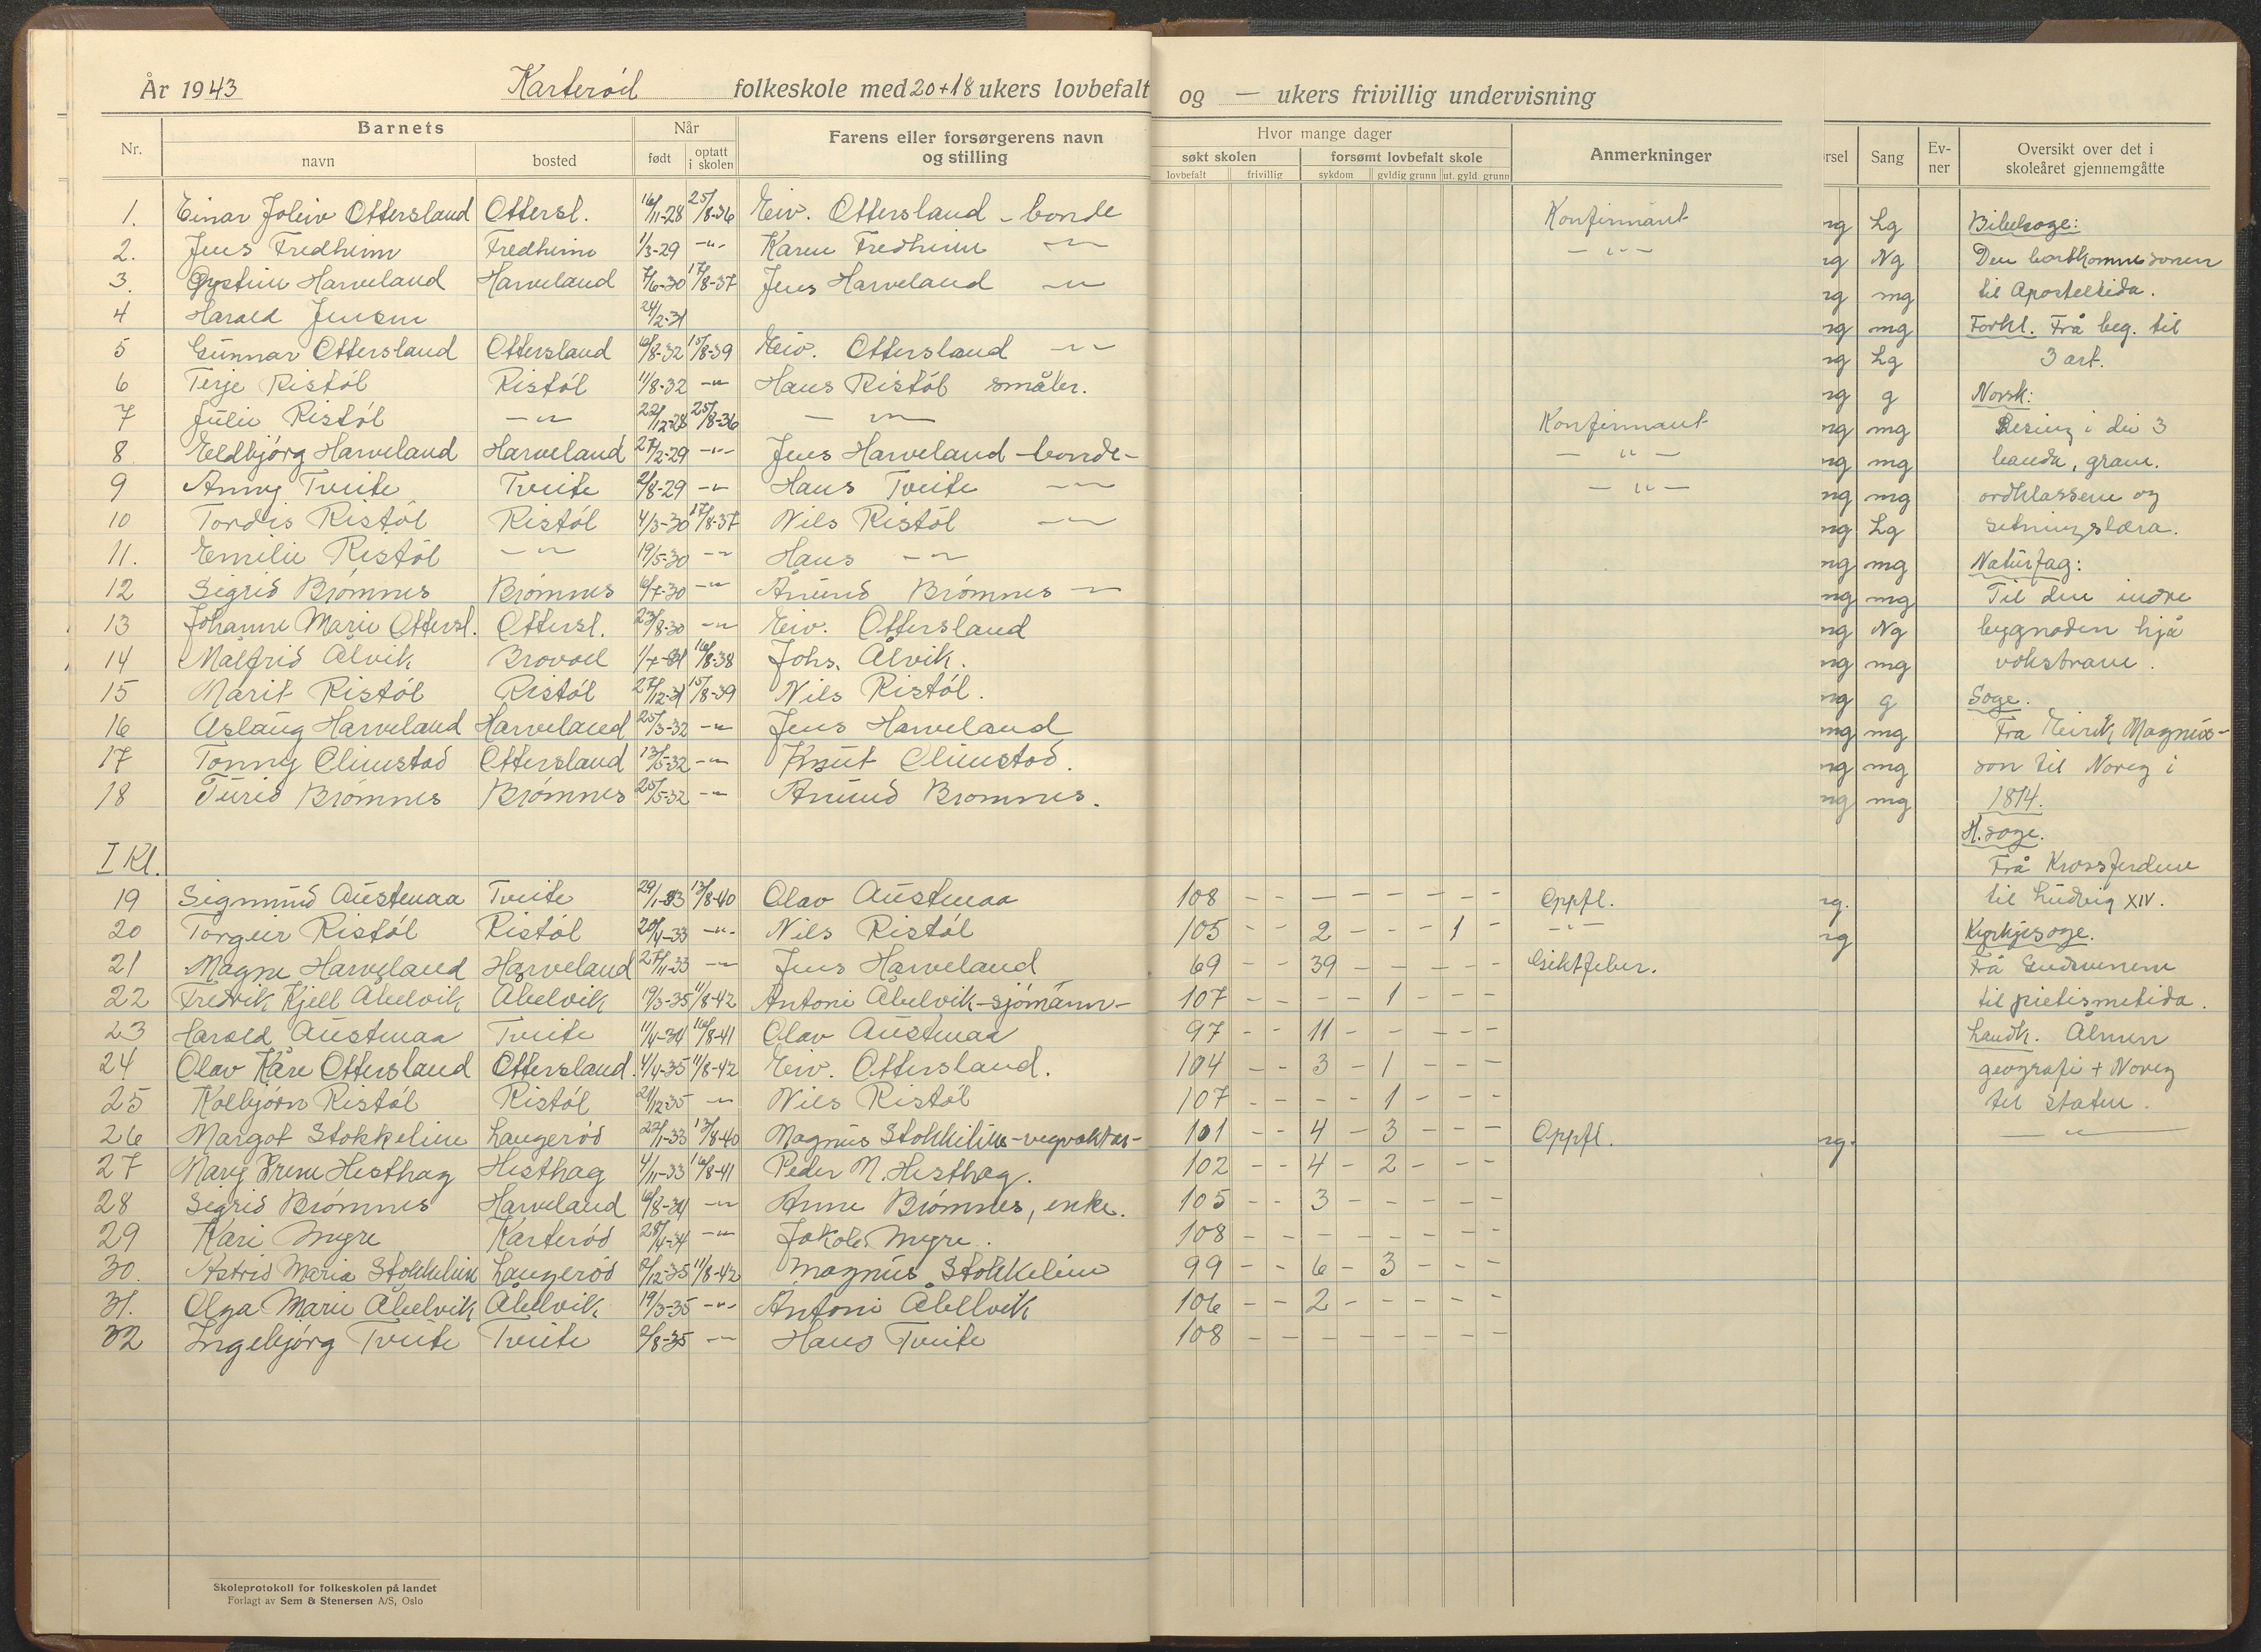 År 1943 Karterød folkeskole med 20+18 ukers lovbefalt og — ukers frivillig undervisning
Nr. Barnets Når Farens eller forsørgerens navn og stilling Hvor mange dager Anmerkninger rsel Sang Evner Oversikt over det i skoleåret gjennemgåtte
navn bosted født optatt i skolen søkt skolen forsømt lovbefalt skole
lovbefalt frivillig sykdom gyldig grunn ut. gyld. grunn
1. Einar Joleiv Ottersland Ottersl. 16/11-28 25/8-36 Eiv. Ottersland - bonde Konfirmant ng Lg Bibelsoge:
2. Jens Fredheim Fredheim 1/3-29 -"- Karen Fredheim -"- -"- ng Ng Den bortkomne sonen
3. Øystein Harveland Harveland 7/6-30 17/8-37 Jens Harveland -"- ng mg til Aposteltida.
4 Harald Jensen 24/2-31 ng mg Forkl. Frå beg. til
5 Gunnar Ottersland Ottersland 6/8-32 15/8-39 Eiv. Ottersland -"- ng Lg 3 art.
6 Terje Ristøl Ristøl 11/8-32 -"- Hans Ristøl småbr. ng g Norsk:
7 Julie Ristøl -"- 22/12-28 25/8-36 -"- Konfirmant ng mg Lesing i dei 3
8 Eldbjørg Harveland Harveland 27/2-29 -"- Jens Harveland - bonde - -"- ng mg banda, gram.
9 Anny Tveite Tveite 2/8-29 -"- Hans Tveite -"- -"- ng mg ordklassene og
10 Tordis Ristøl Ristøl 4/3-30 17/8-37 Nils Ristøl -"- ng Lg setningslæra.
11. Emilie Ristøl -"- 19/5-30 -"- Hans -"- ng mg Naturfag:
12 Sigrid Brømnes Brømnes 6/7-30 -"- Ånund Brømnes -"- ng mg Til den indre
13 Johanne Marie Ottersl. Ottersl. 23/8-30 -"- Eiv. Ottersland ng Ng bygnaden hjå
14 Målfrid Ålvik Brovoll 1/7-31 16/8-38 Johs. Ålvik. ng mg vokstrane.
15 Marit Ristøl Ristøl 27/12-31 15/8-39 Nils Ristøl. ng g Soge.
16 Aslaug Harveland Harveland 25/3-32 -"- Jens Harveland ng mg Frå Eirik Magnus-
17 Tonny Olimstad Ottersland 13/5-32 -"- Knut Olimstad. ng mg son til Noreg i
18 Turid Brømnes Brømnes 25/5-32 -"- Ånund Brømnes. ng mg 1814.
H. soge.
I Kl. Frå Krossferdene
19 Sigmund Austenaa Tveite 29/1-33 13/8-40 Olav Austenaa 108 - - - - - - - - Oppfl. ng. til Ludvig XIV.
20 Torgeir Ristøl Ristøl 20/4-33 -"- Nils Ristøl 105 - - 2 - - - 1 - -"- ng Kyrkjesoge.
21 Magne Harveland Harveland 27/11-33 -"- Jens Harveland 69 - - 39 - - - - - Giktfeber. Frå
22 Fredrik Kjell Åbelvik Åbelvik 19/3-35 11/8-42 Antoni Åbelvik - sjømann - 107 - - - - 1 - - - til pietismetida.
23 Harald Austenaa Tveite 11/4-34 16/8-41 Olav Austenaa 97 - - 11 - - - - - Landk. Ålmen
24 Olav Kåre Ottersland Ottersland. 4/4-35 11/8-42 Eiv. Ottersland. 104 - - 3 - 1 - - - geografi + Noreg
25 Kolbjørn Ristøl Ristøl 21/12-35 -"- Nils Ristøl 107 - - - - 1 - - - til staten.
26 Margot Stokkelien Langerød 22/1-33 13/8-40 Magnus Stokkelien - vegvaktar - 101 - - 4 - 3 - - - Oppfl. ng. -"-
27 Mary Irene Hesthag Hesthag 4/11-33 16/8-41 Peder N. Hesthag. 102 - - 4 - 2 - - -
28 Sigrid Brømnes Harveland 6/8-34 -"- Anne Brømnes, enke. 105 - - 3 - - - - -
29 Kari Myre Karterød 28/4-34 -"- Jakob Myre. 108 - - - - - - - -
30. Astrid Maria Stokkelien Langerød 9/12-35 11/8-42 Magnus Stokkelien 99 - - 6 - 3 - - -
31. Olga Marie Åbelvik Åbelvik 19/3-35 -"- Antoni Åbelvik 106 - - 2 - - - - -
32 Ingebjørg Tveite Tveite 2/8-35 -"- Hans Tveite 108 - - - - - - - -
Skoleprotokoll for folkeskolen på landet
Forlagt av Sem & Stenersen A/S, Oslo